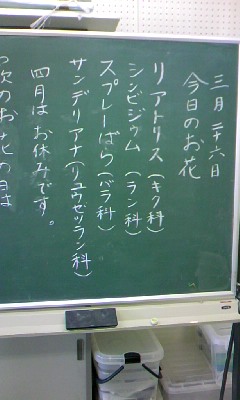 三月二十六日
今日のお花
リアトリス(キク科)
シンビジウム(ラン科)
スプレーばら(バラ科)
サンデリアナ(リュウゼツラン科)
四月はお休みです。
次のお花の日は